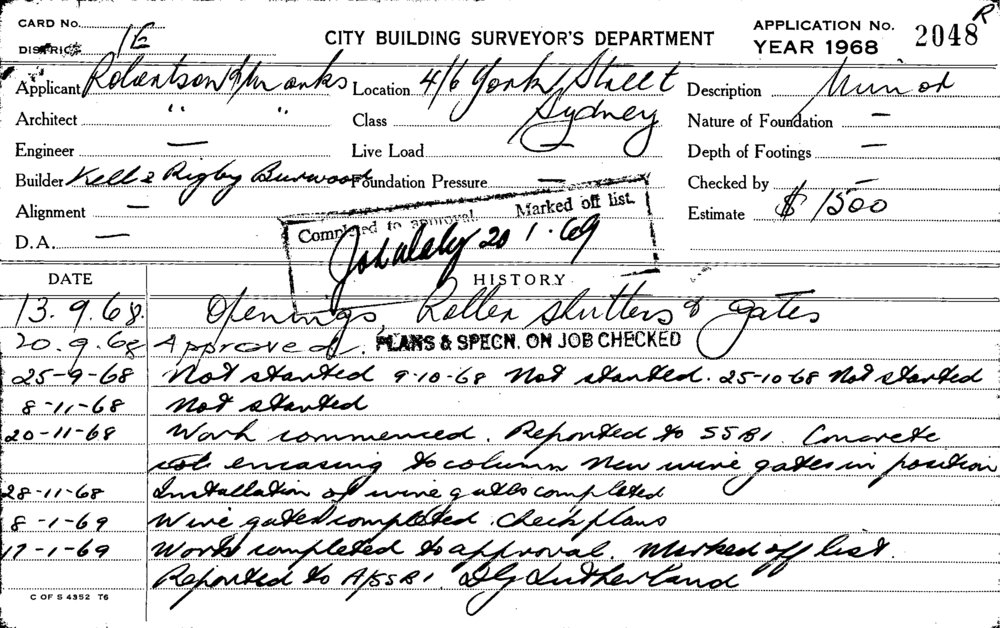 CARD No.
DISTRICT 1E
CITY BUILDING SURVEYOR'S DEPARTMENT
APPLICATION No. 2048 R
YEAR 1968
Applicant Robertson & Marks Location 4/6 York Street Description Minor
Architect " " Class Sydney Nature of Foundation —
Engineer — Live Load Depth of Footings —
Builder Kell & Rigby Burwood Foundation Pressure — Checked by —
Alignment — Estimate $ 1500
D.A. —
Completed to approval. Marked off list.
20 1.69
DATE HISTORY
13.9.68. Openings Roller shutters & gates
20.9.68 Approved. PLANS & SPECN. ON JOB CHECKED
25-9-68 Not started 9-10-68 Not started. 25-10-68 Not started
8-11-68 Not started
20-11-68 Work commenced. Reported to SSBI. Concrete
encasing to column new wire gates in position
28-11-68 Installation of wire gates completed
8-1-69 Wire gates completed. Check plans
17-1-69 Work completed to approval. Marked off list.
Reported to A/SSBI. DG Sutherland
C OF S 4352 76